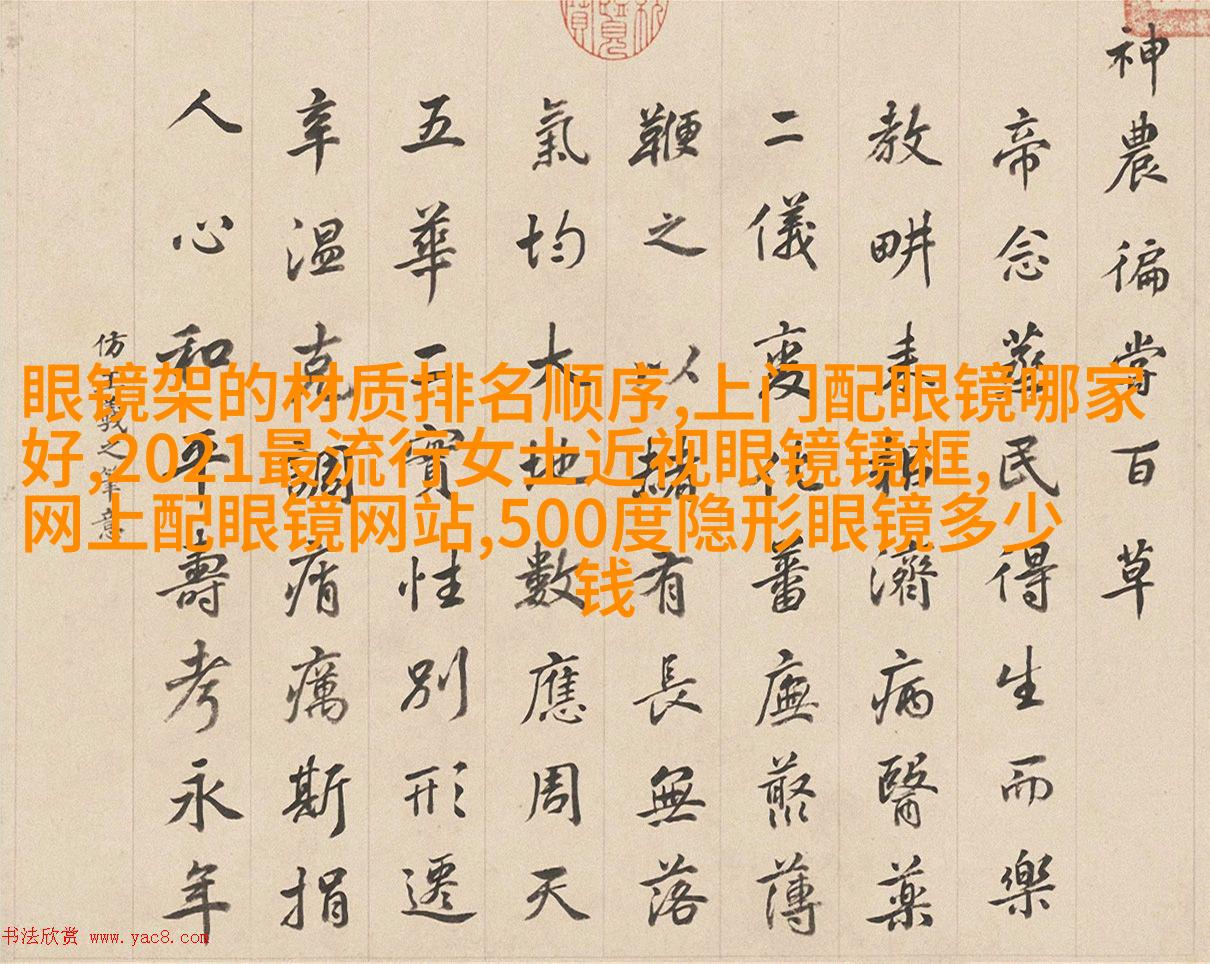 眼镜架的材质排名顺序,上门配眼镜哪家
好,2021最流行女士近视眼镜镜框,
网上配眼镜网站,500度隐形眼镜多少
钱
神農徧嘗百草
帝念民得生而樂
教畊耒耜濟病醫藥
二儀變化蕃廡叢薄
鞭之以赭有長無落
氣均大地數應周天
五華三實性別形遷
辛温克調痟癘斯捐
人心和平壽考永年
仿王羲之筆意
书法欣赏 www.yac8.com